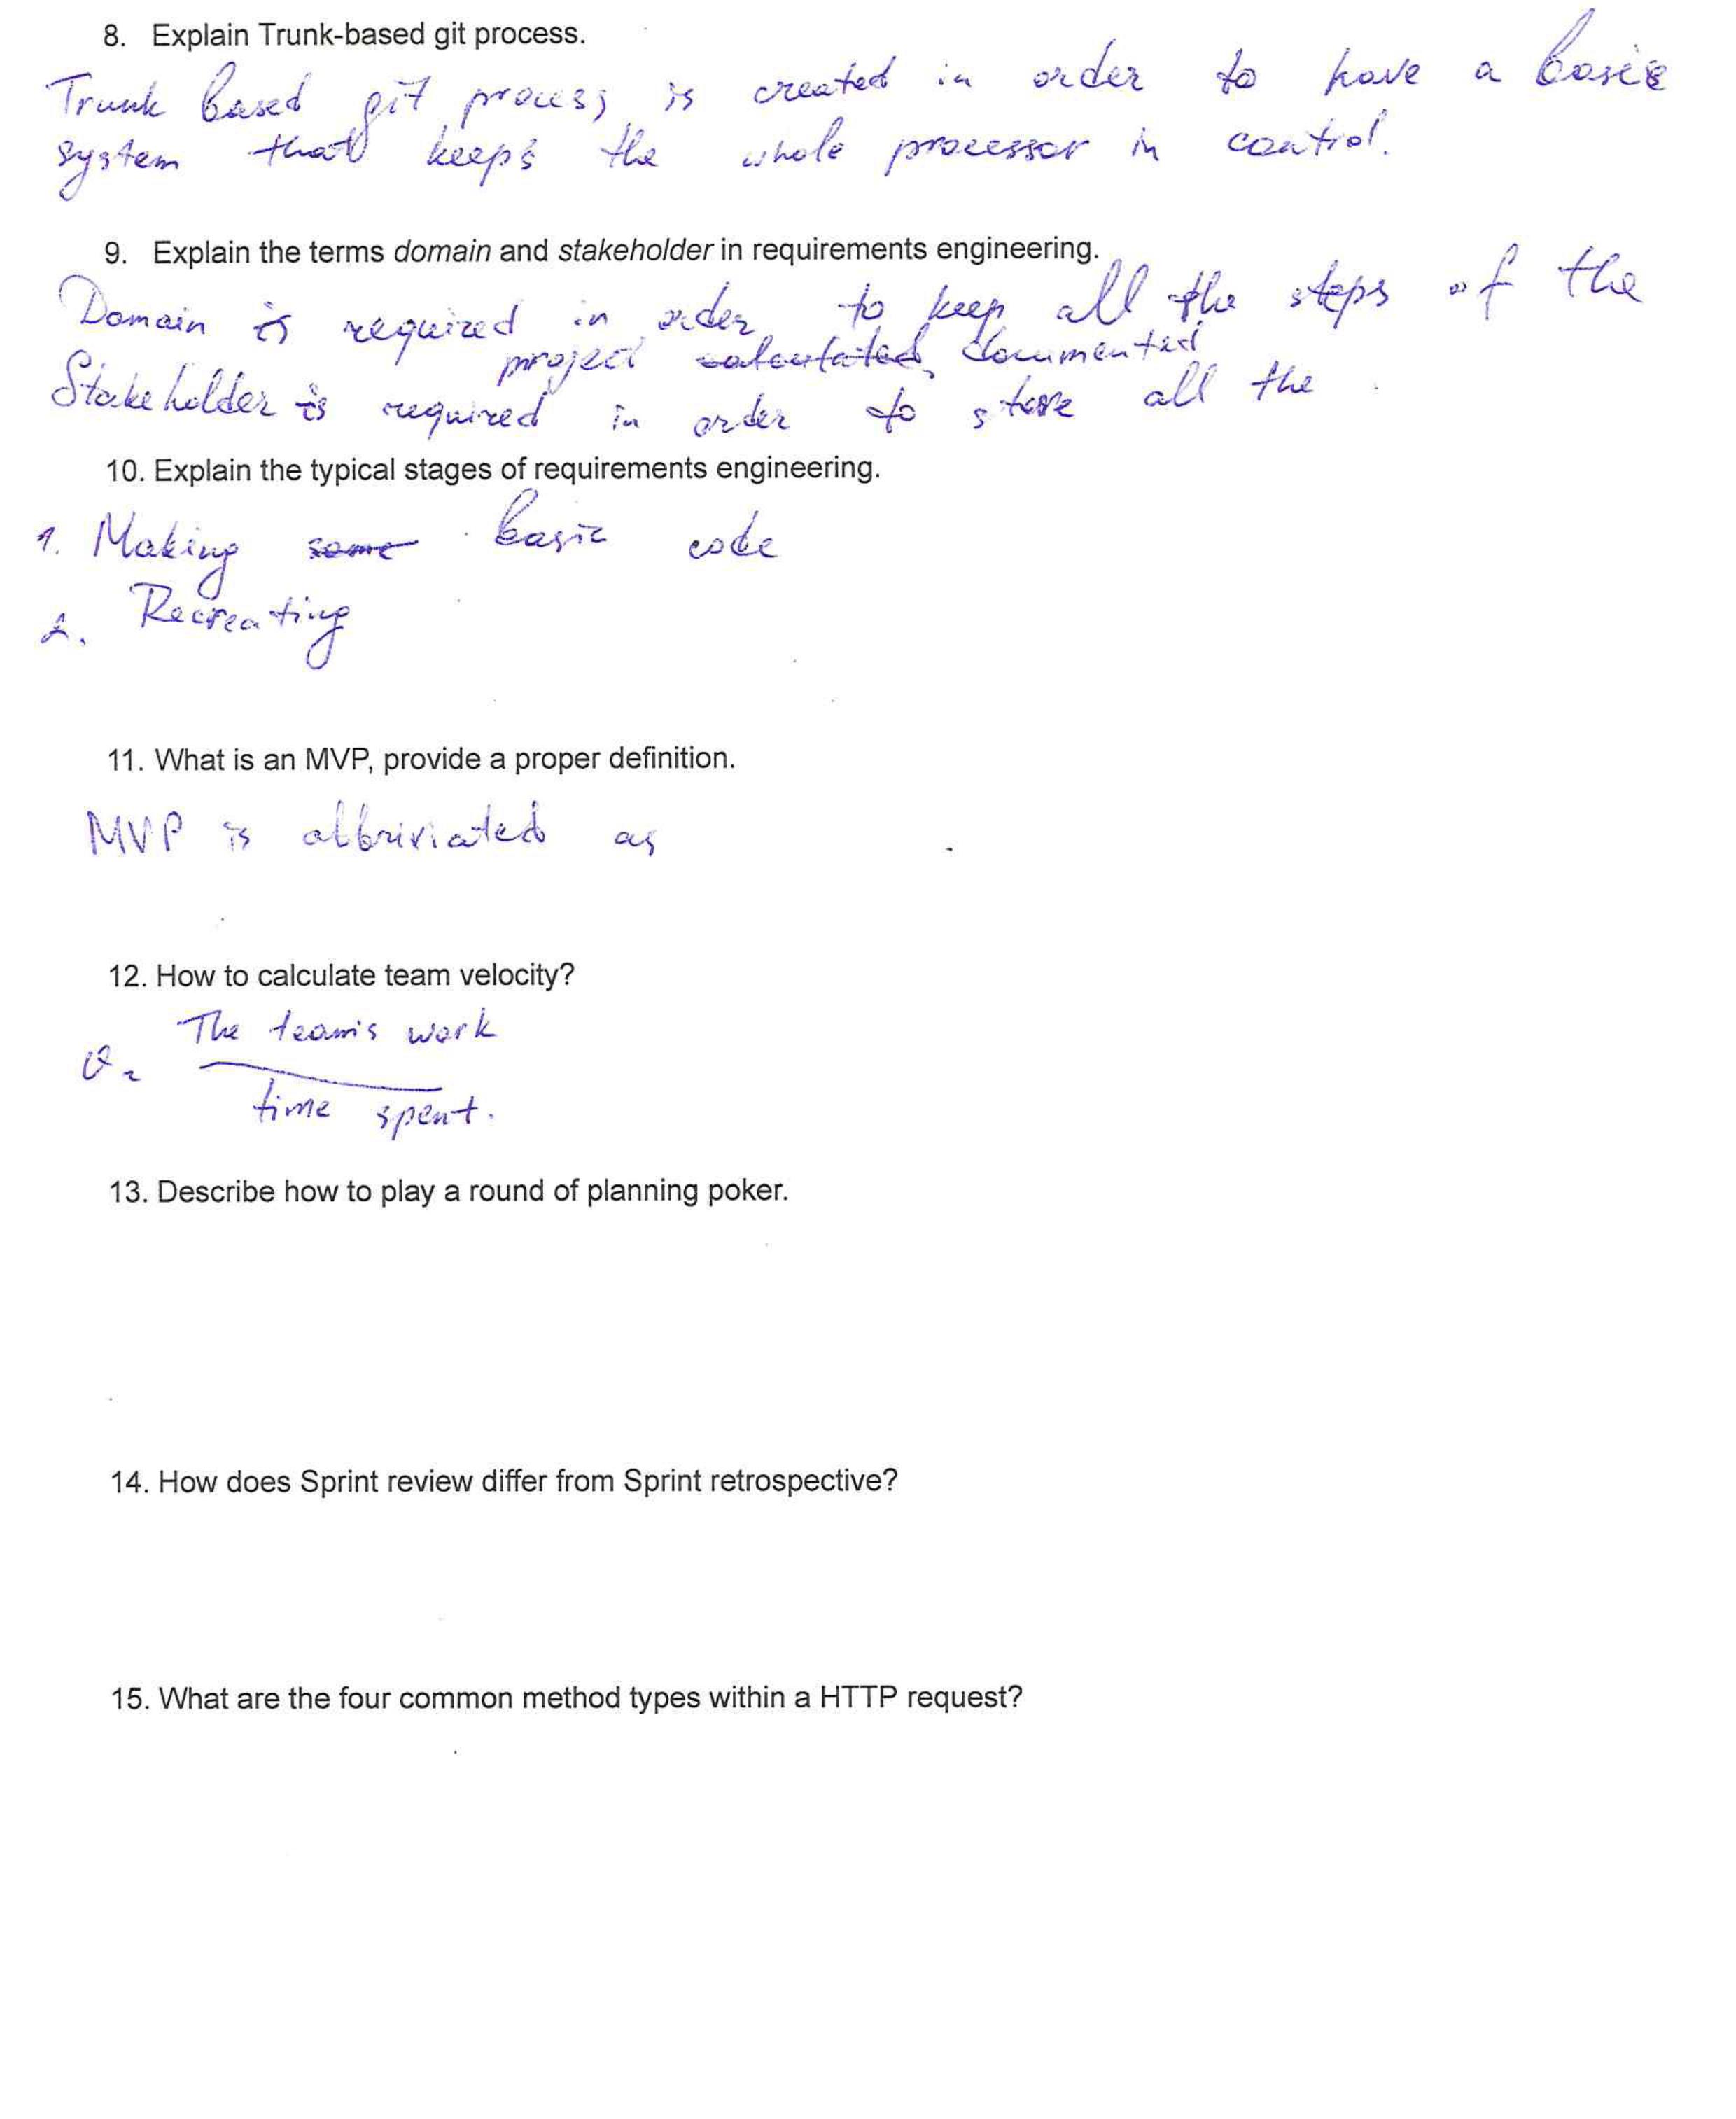 8. Explain Trunk-based git process.
Trunk based git process is created in order to have a basic
system that keeps the whole processor in control.
9. Explain the terms domain and stakeholder in requirements engineering.
Domain is required in order to keep all the steps of the
project calculated documented
Stakeholder is required in order to store all the
10. Explain the typical stages of requirements engineering.
1. Making some basic code
2. Recreating
11. What is an MVP, provide a proper definition.
MVP is abbriviated as
12. How to calculate team velocity?
The team's work
v =
time spent.
13. Describe how to play a round of planning poker.
14. How does Sprint review differ from Sprint retrospective?
15. What are the four common method types within a HTTP request?